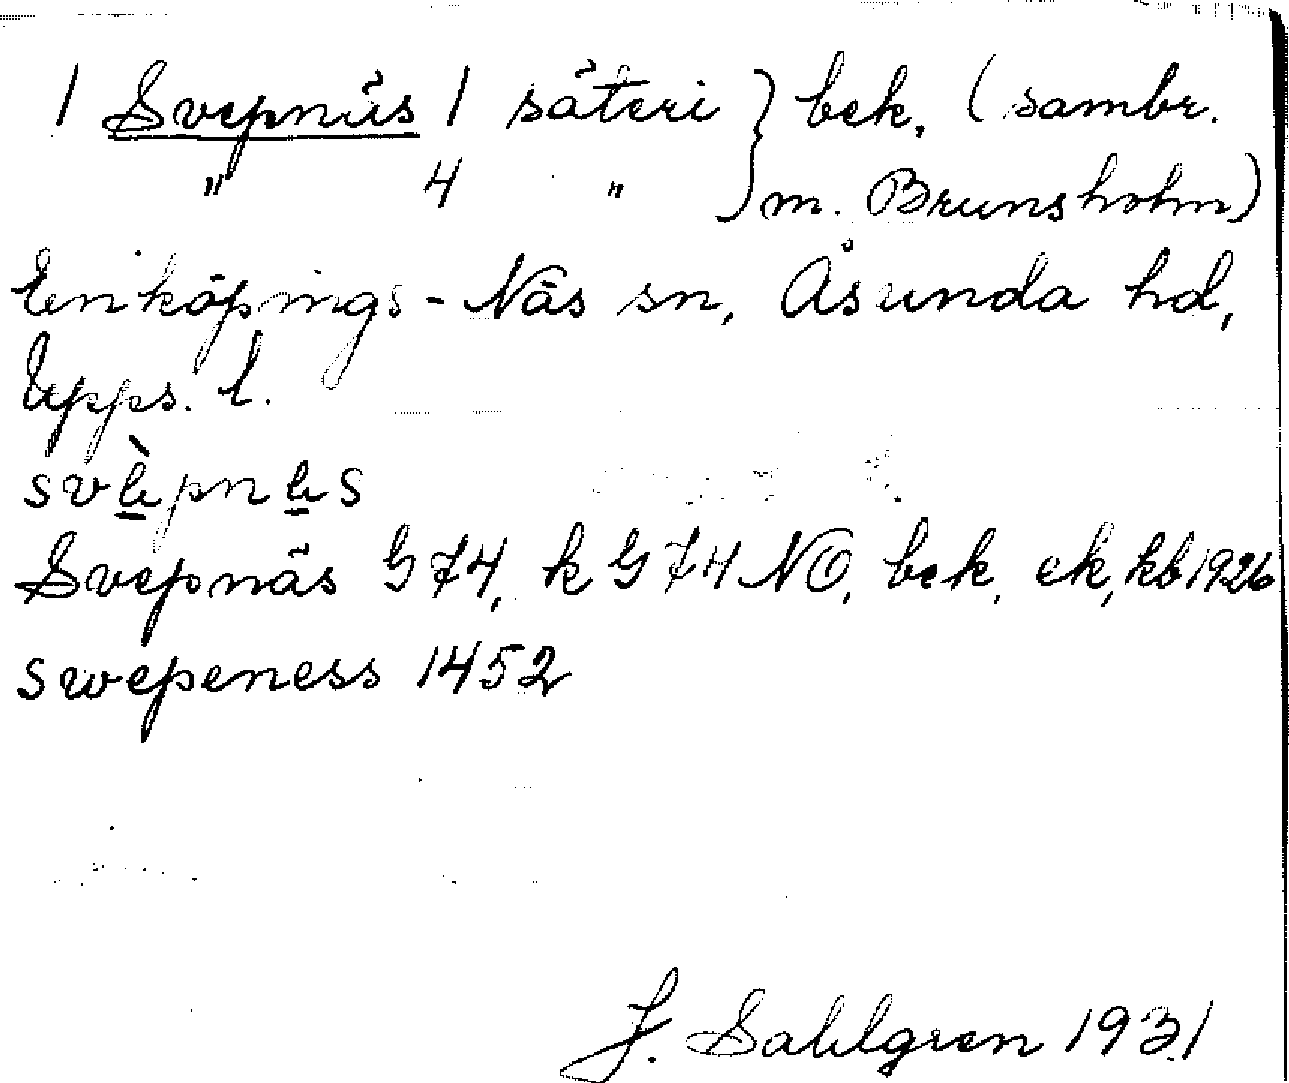 1 Svepnäs 1 säteri } bek. (sambr.
" 4 " } m. Brunsholm)
Enköpings-Näs sn, Åsunda hd,
Upps. l.
svὲpnεs
Svepnäs G74, k G74 NO, bek, ek, kb 1926
swepeness 1452
J. Sahlgren 1931